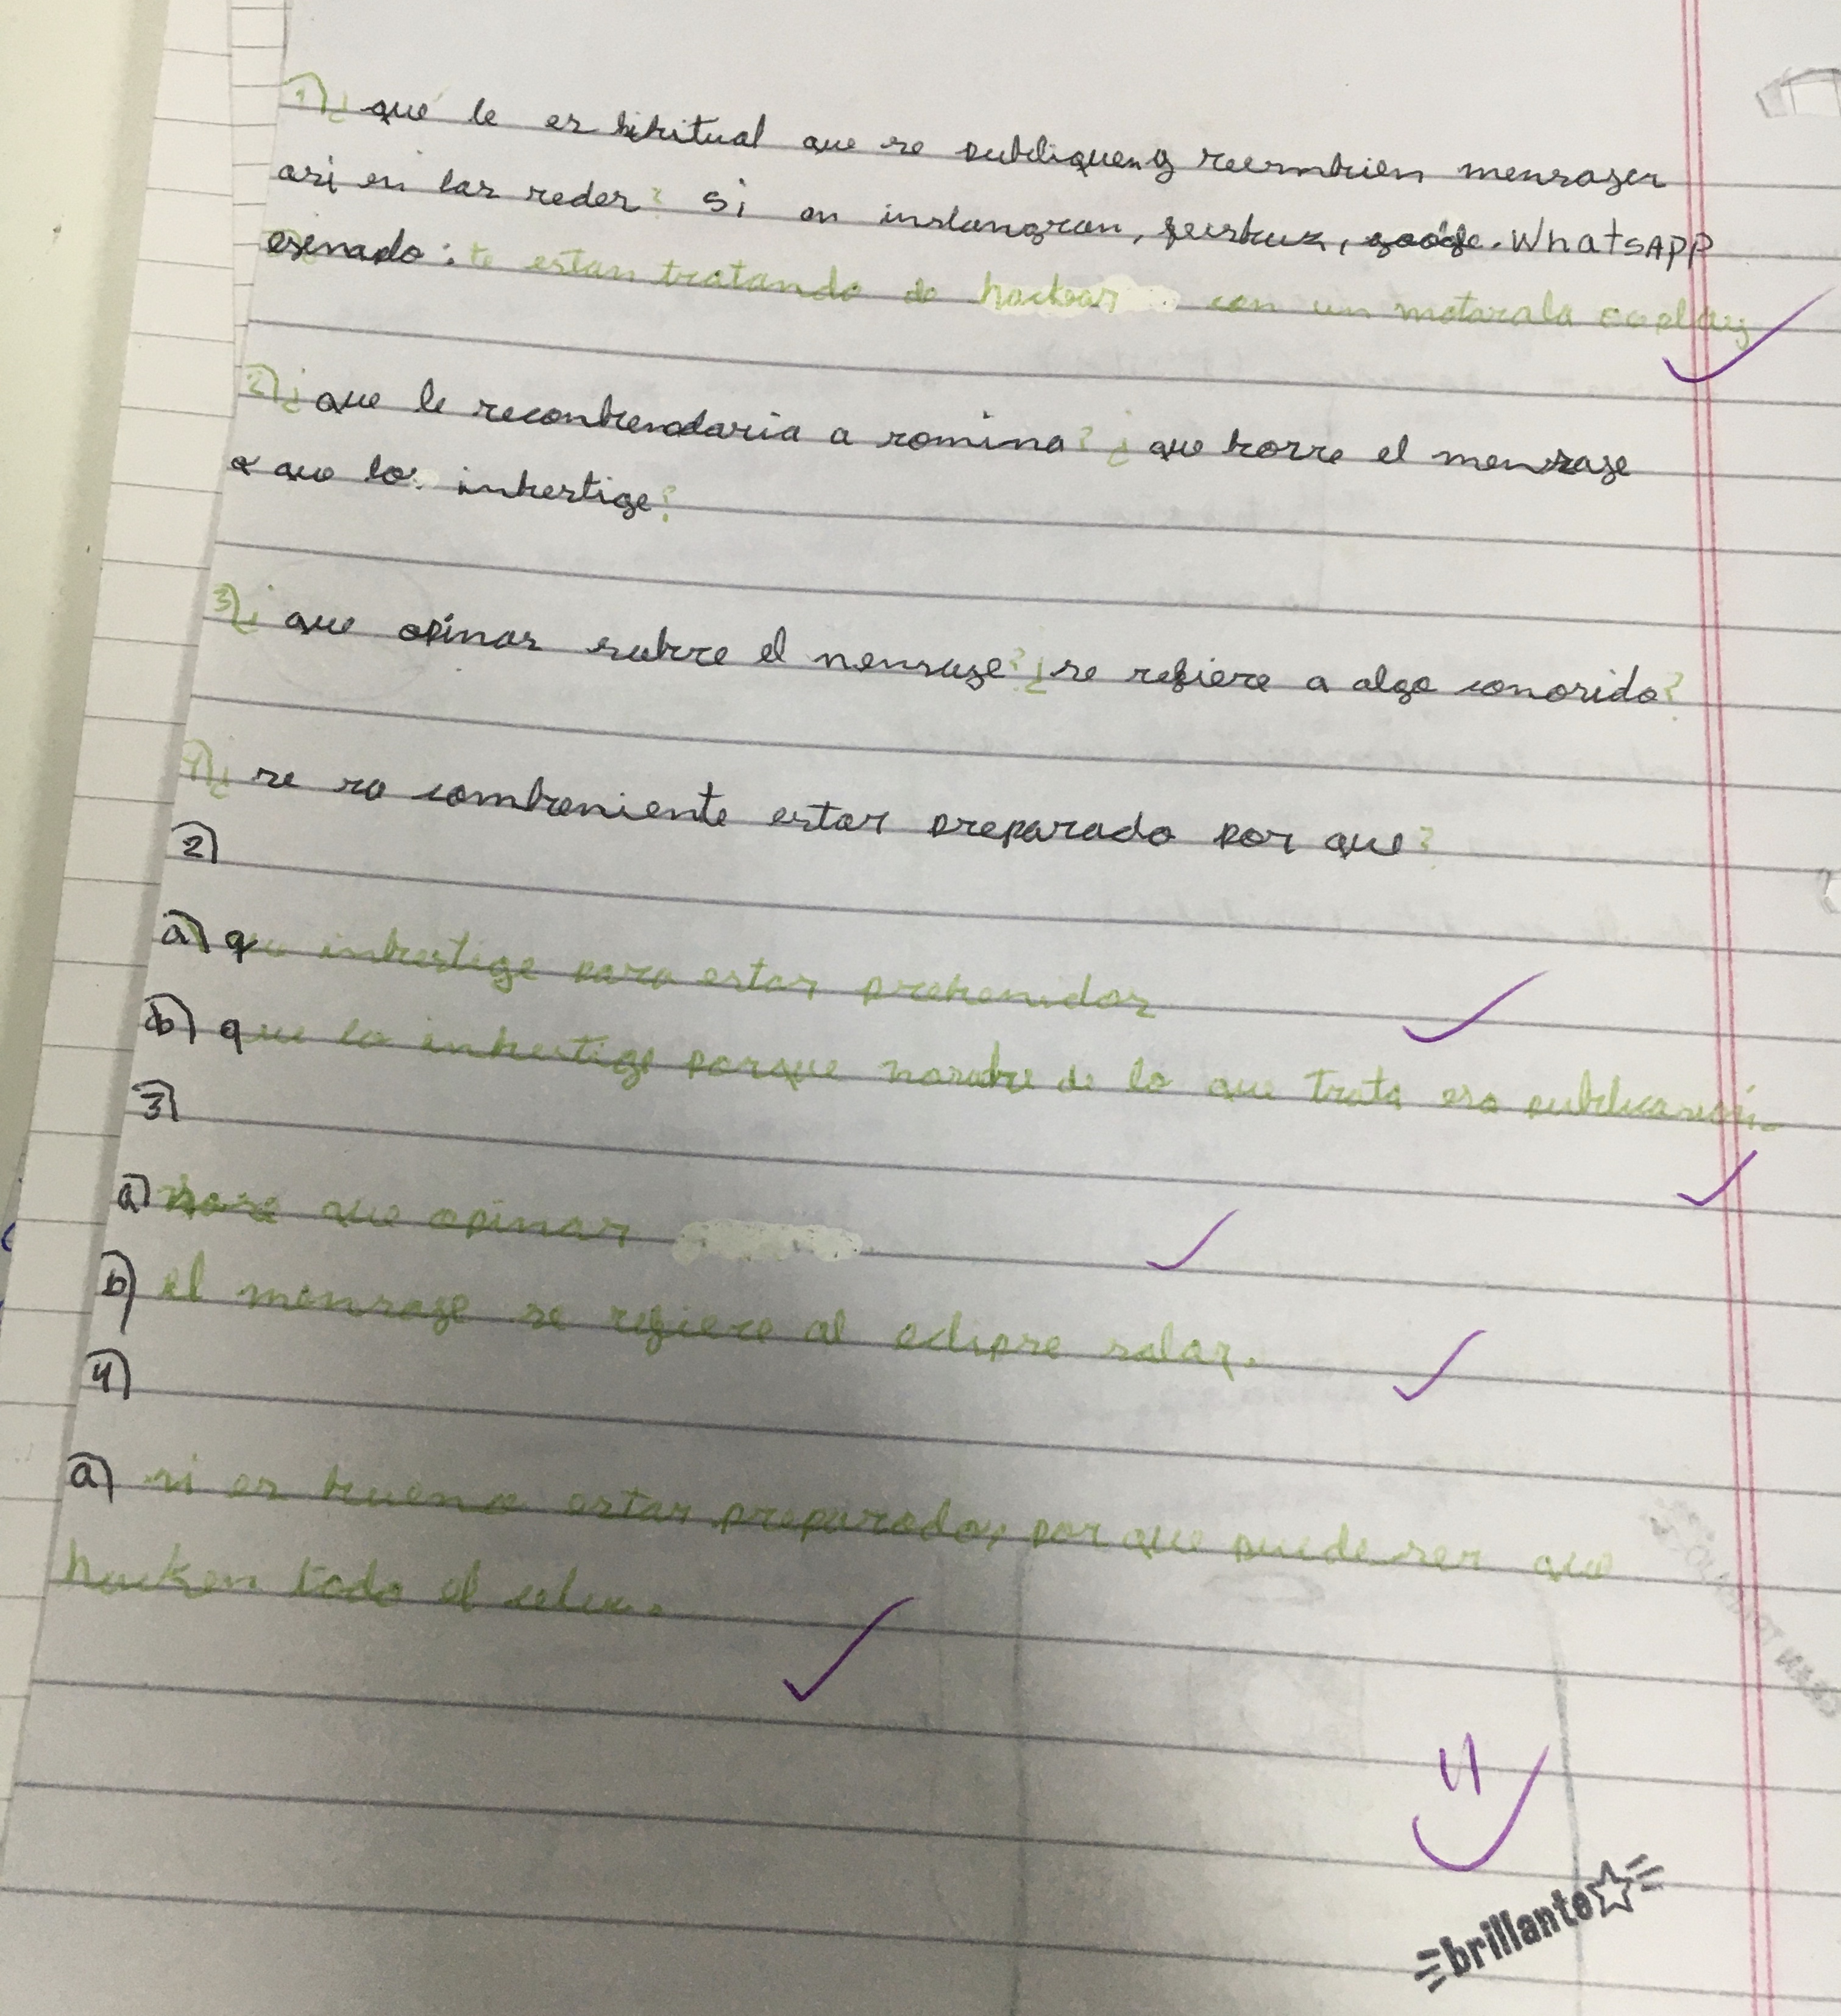 1) ¿ qué le es hibitual que se publiquen y reenvien mensages
asi en las redes? Si en instangran, feisbuk, google. WhatsAPP
egenado: te estan tratando de hackear con un
2) ¿ que le reconbendaria a romina? ¿ que borre el mensage
o que lo inbestige?
3) ¿ que opinas sobre el mensage? ¿ se refiere a algo conosido?
4) ¿ se ra combeniente estar preparado por que?
2)
a) que inbestige para estar prebenidos
b) que lo inbestige porque nosabe de lo que trata esa publicasión.
3)
a) nose que opinar
b) el mensage se refiere al eclipse solar.
4)
a) si es bueno estar preparados, por que puede ser que
hacken todo el celu.
brillante